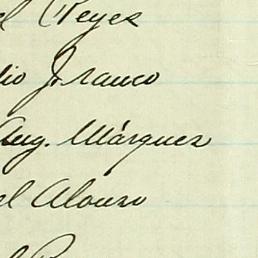 el Reyes
lio Franco
Aug. Márquez
el Alonso